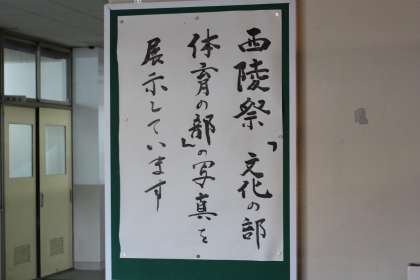 西陵祭「文化の部
体育の部」の写真を
展示しています